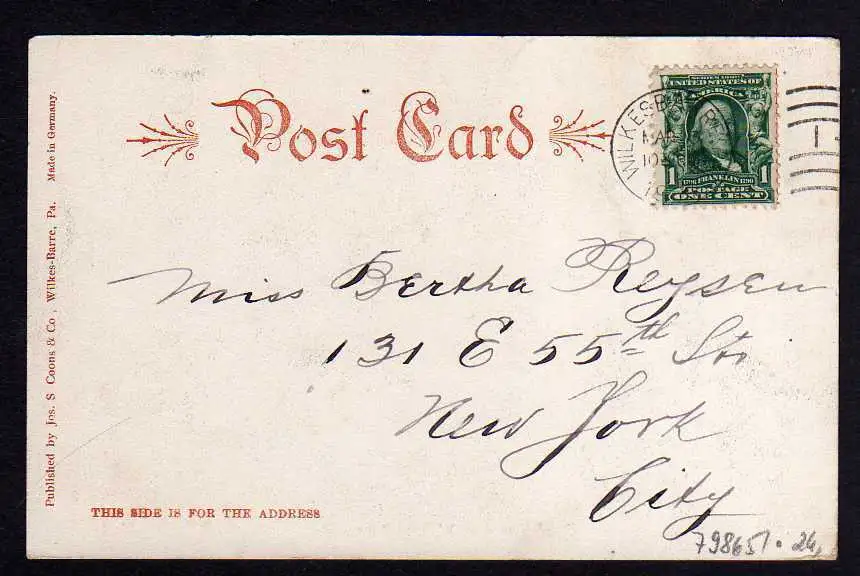 Post Card
SERIES 1902
UNITED STATES OF
AMERICA
1 1790 FRANKLIN 1790 1
POSTAGE
ONE CENT
WILKES-BARRE
Miss Bertha Reysen
131 E 55th Str
New York
City
THIS SIDE IS FOR THE ADDRESS
798651 · 26,
Published by Jos. S Coons & Co, Wilkes-Barre, Pa. Made in Germany.